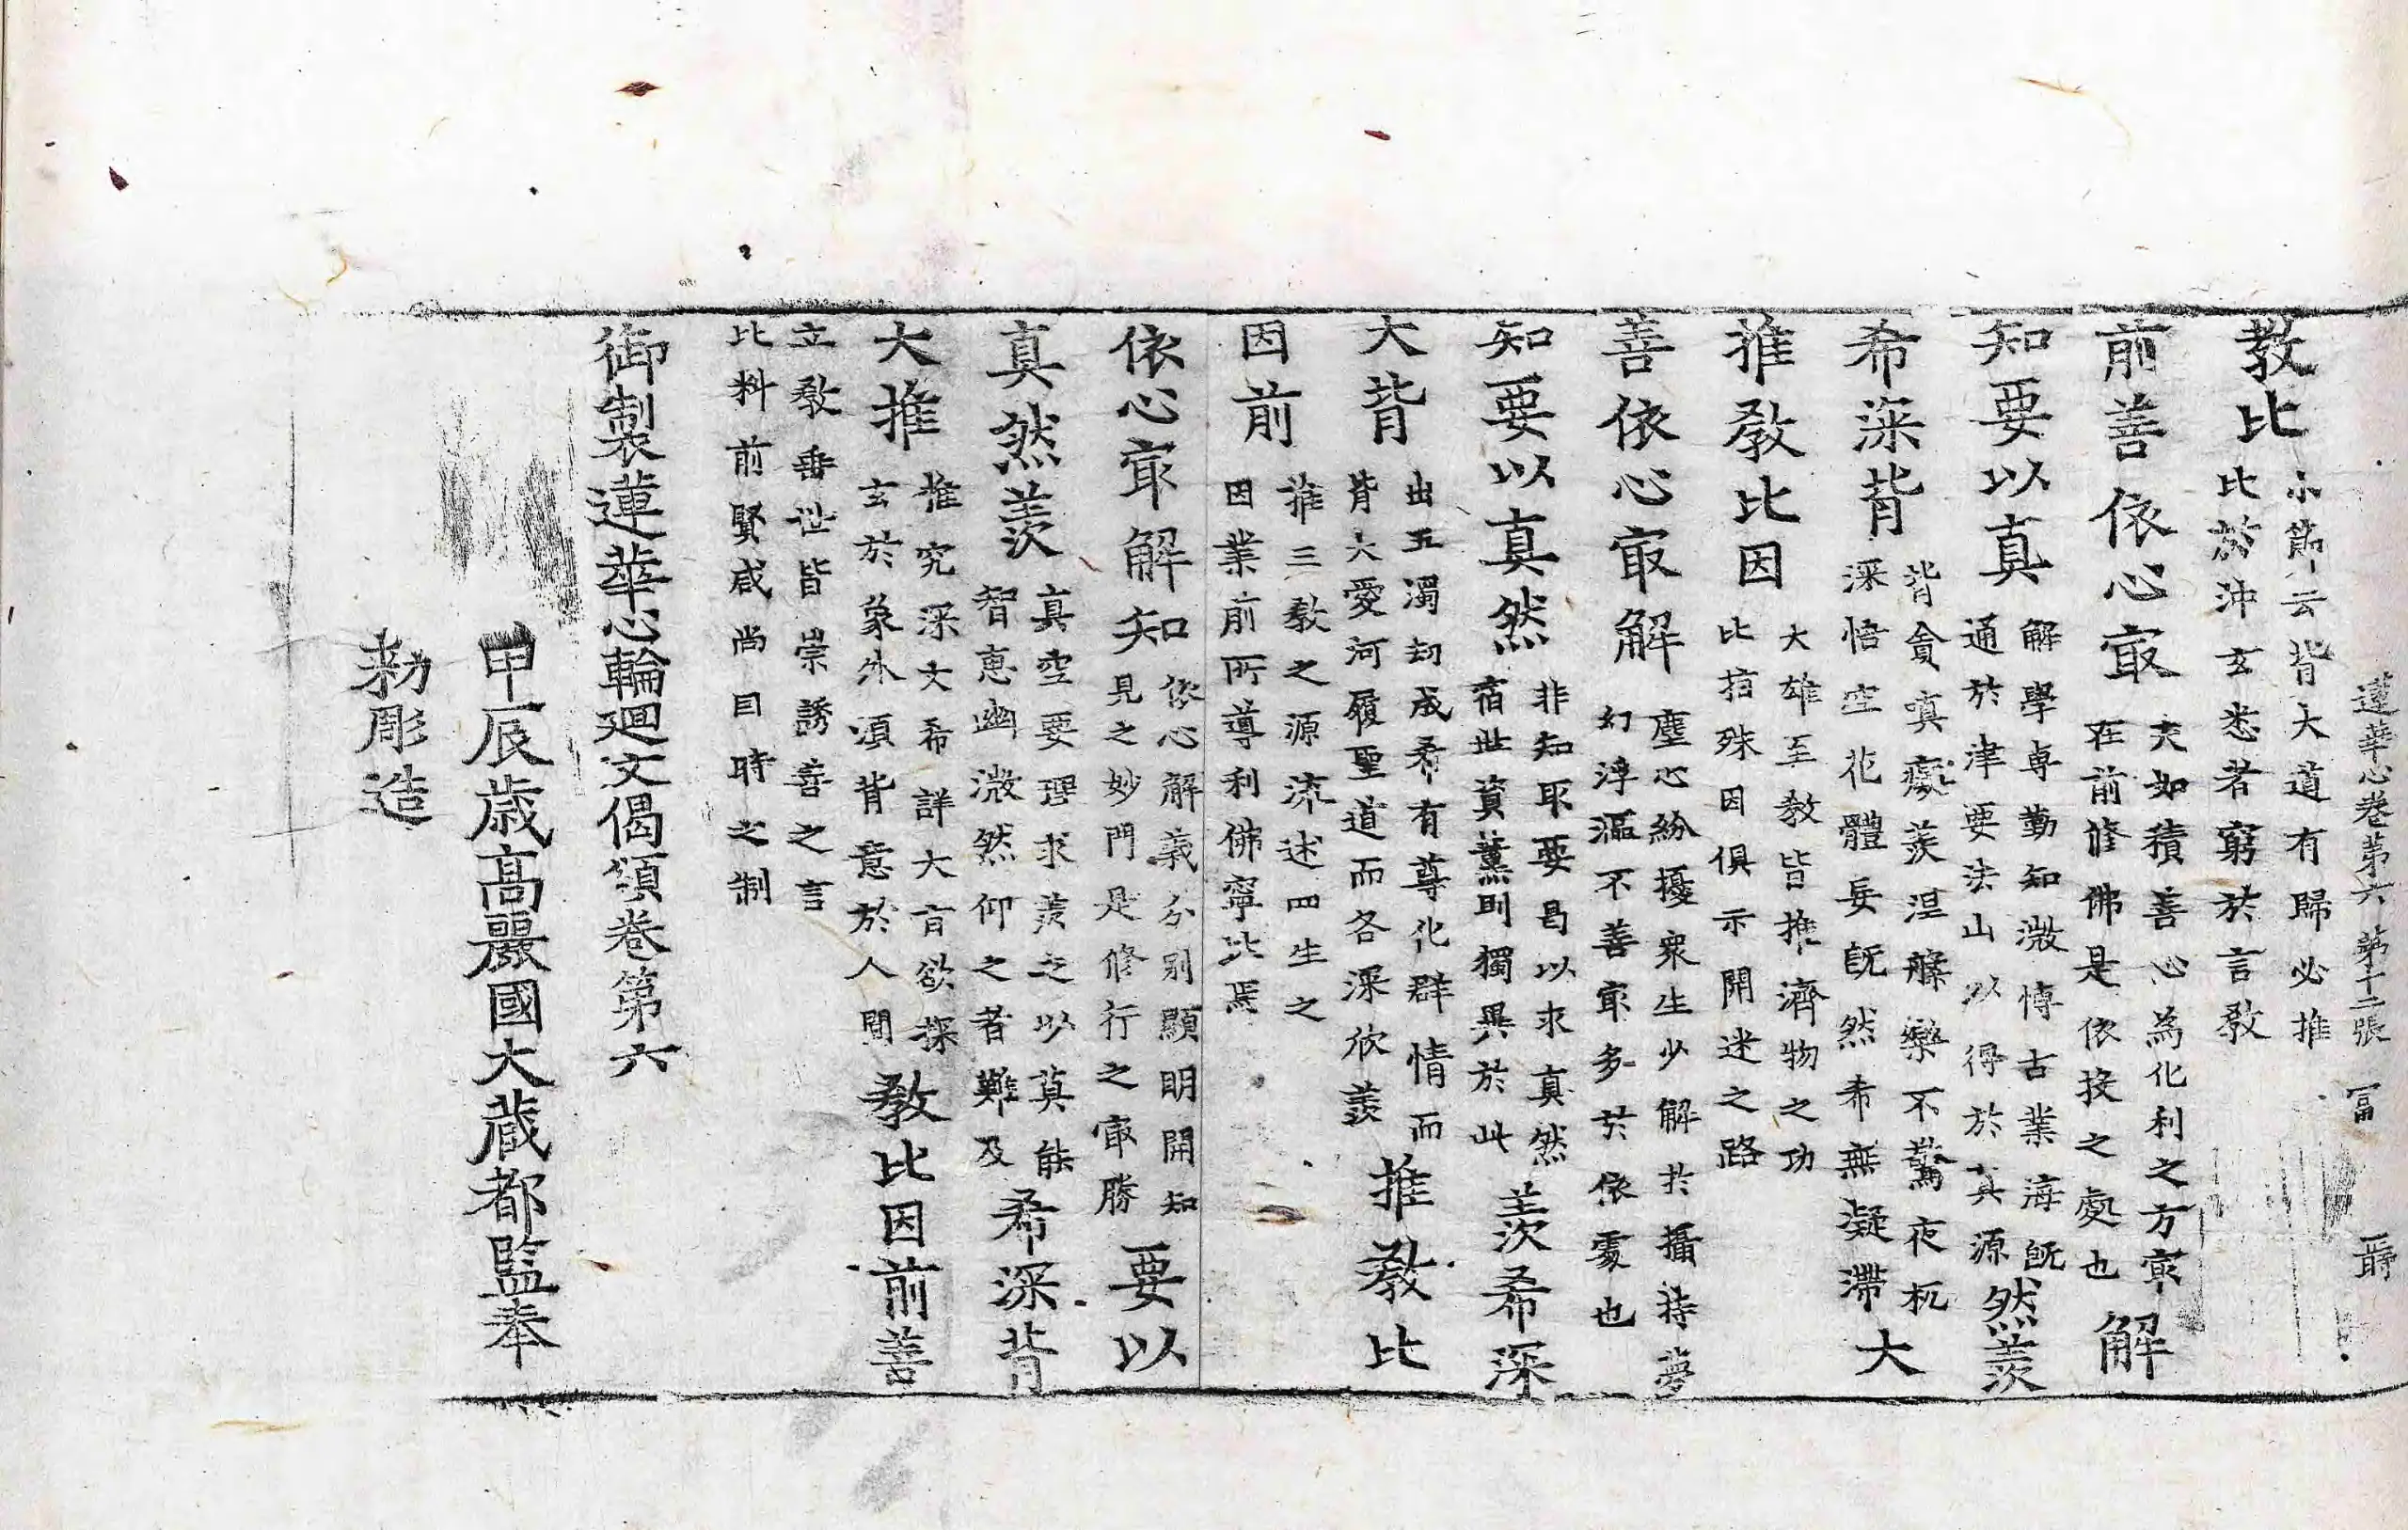 蓮華心卷第六　第十二張　冨
教比　小節云背大道有歸必推
比於沖玄悉若窮於言教
前善依心㝡　夫如積善心為化利之方㝡
在前修佛是依投之處也　解
知要以真　解學専勤知微博古業海旣
通於津要法山以得於真源　然羨
希深背　背貪嗔癡羨涅槃樂不驚夜杌
深悟空花體妄旣然希無凝滯　大
推教比因　大雄至教皆推濟物之功
比指殊因俱示開迷之路
善依心㝡解　塵心紛擾衆生少解於攝持夢
幻浮漚不善㝡多於依處也
知要以真然　非知取要曷以求真然
宿世資薰則獨異於此　羨希深
大背　出五濁劫成希有尊化群情而
背大愛河履聖道而各深欣羨　推教比
因前　推三教之源流述四生之
因業前所導利佛寧比焉
依心㝡解知　依心解義分別顯明開知
見之妙門是修行之㝡勝　要以
真然羨　真空要理求羨之以莫能
智恵幽微然仰之者難及　希深背
大推　推究深文希詳大旨欲探
玄於象外須背意於人間　教比因前善
立教垂世皆崇誘善之言
比料前賢咸尚目時之制
御製蓮華心輪廻文偈頌卷第六
甲辰歳高麗國大藏都監奉
勅彫造